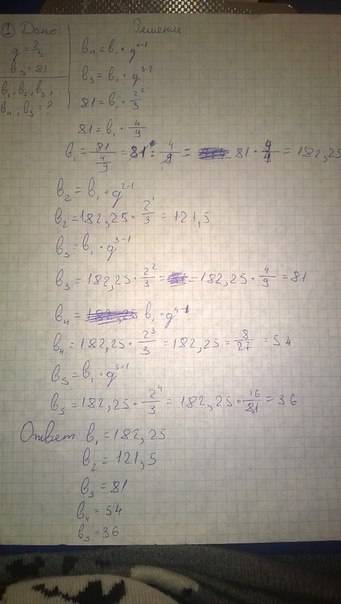 ① Дано: Решение
q = 2/3
b₃ = 81
b₁, b₂, b₃,
b₄, b₅ = ?
bₙ = b₁ · qⁿ⁻¹
b₃ = b₁ · q³⁻¹
81 = b₁ · 2²/3
81 = b₁ · 4/9
b₁ = 81/(4/9) = 81 : 4/9 = 81 · 9/4 = 182,25
b₂ = b₁ · q²⁻¹
b₂ = 182,25 · 2¹/3 = 121,5
b₃ = b₁ · q³⁻¹
b₃ = 182,25 · 2²/3 = 182,25 · 4/9 = 81
b₄ = b₁ · q⁴⁻¹
b₄ = 182,25 · 2³/3 = 182,25 · 8/27 = 54
b₅ = b₁ · q⁵⁻¹
b₅ = 182,25 · 2⁴/3 = 182,25 · 16/81 = 36
Ответ b₁ = 182,25
b₂ = 121,5
b₃ = 81
b₄ = 54
b₅ = 36